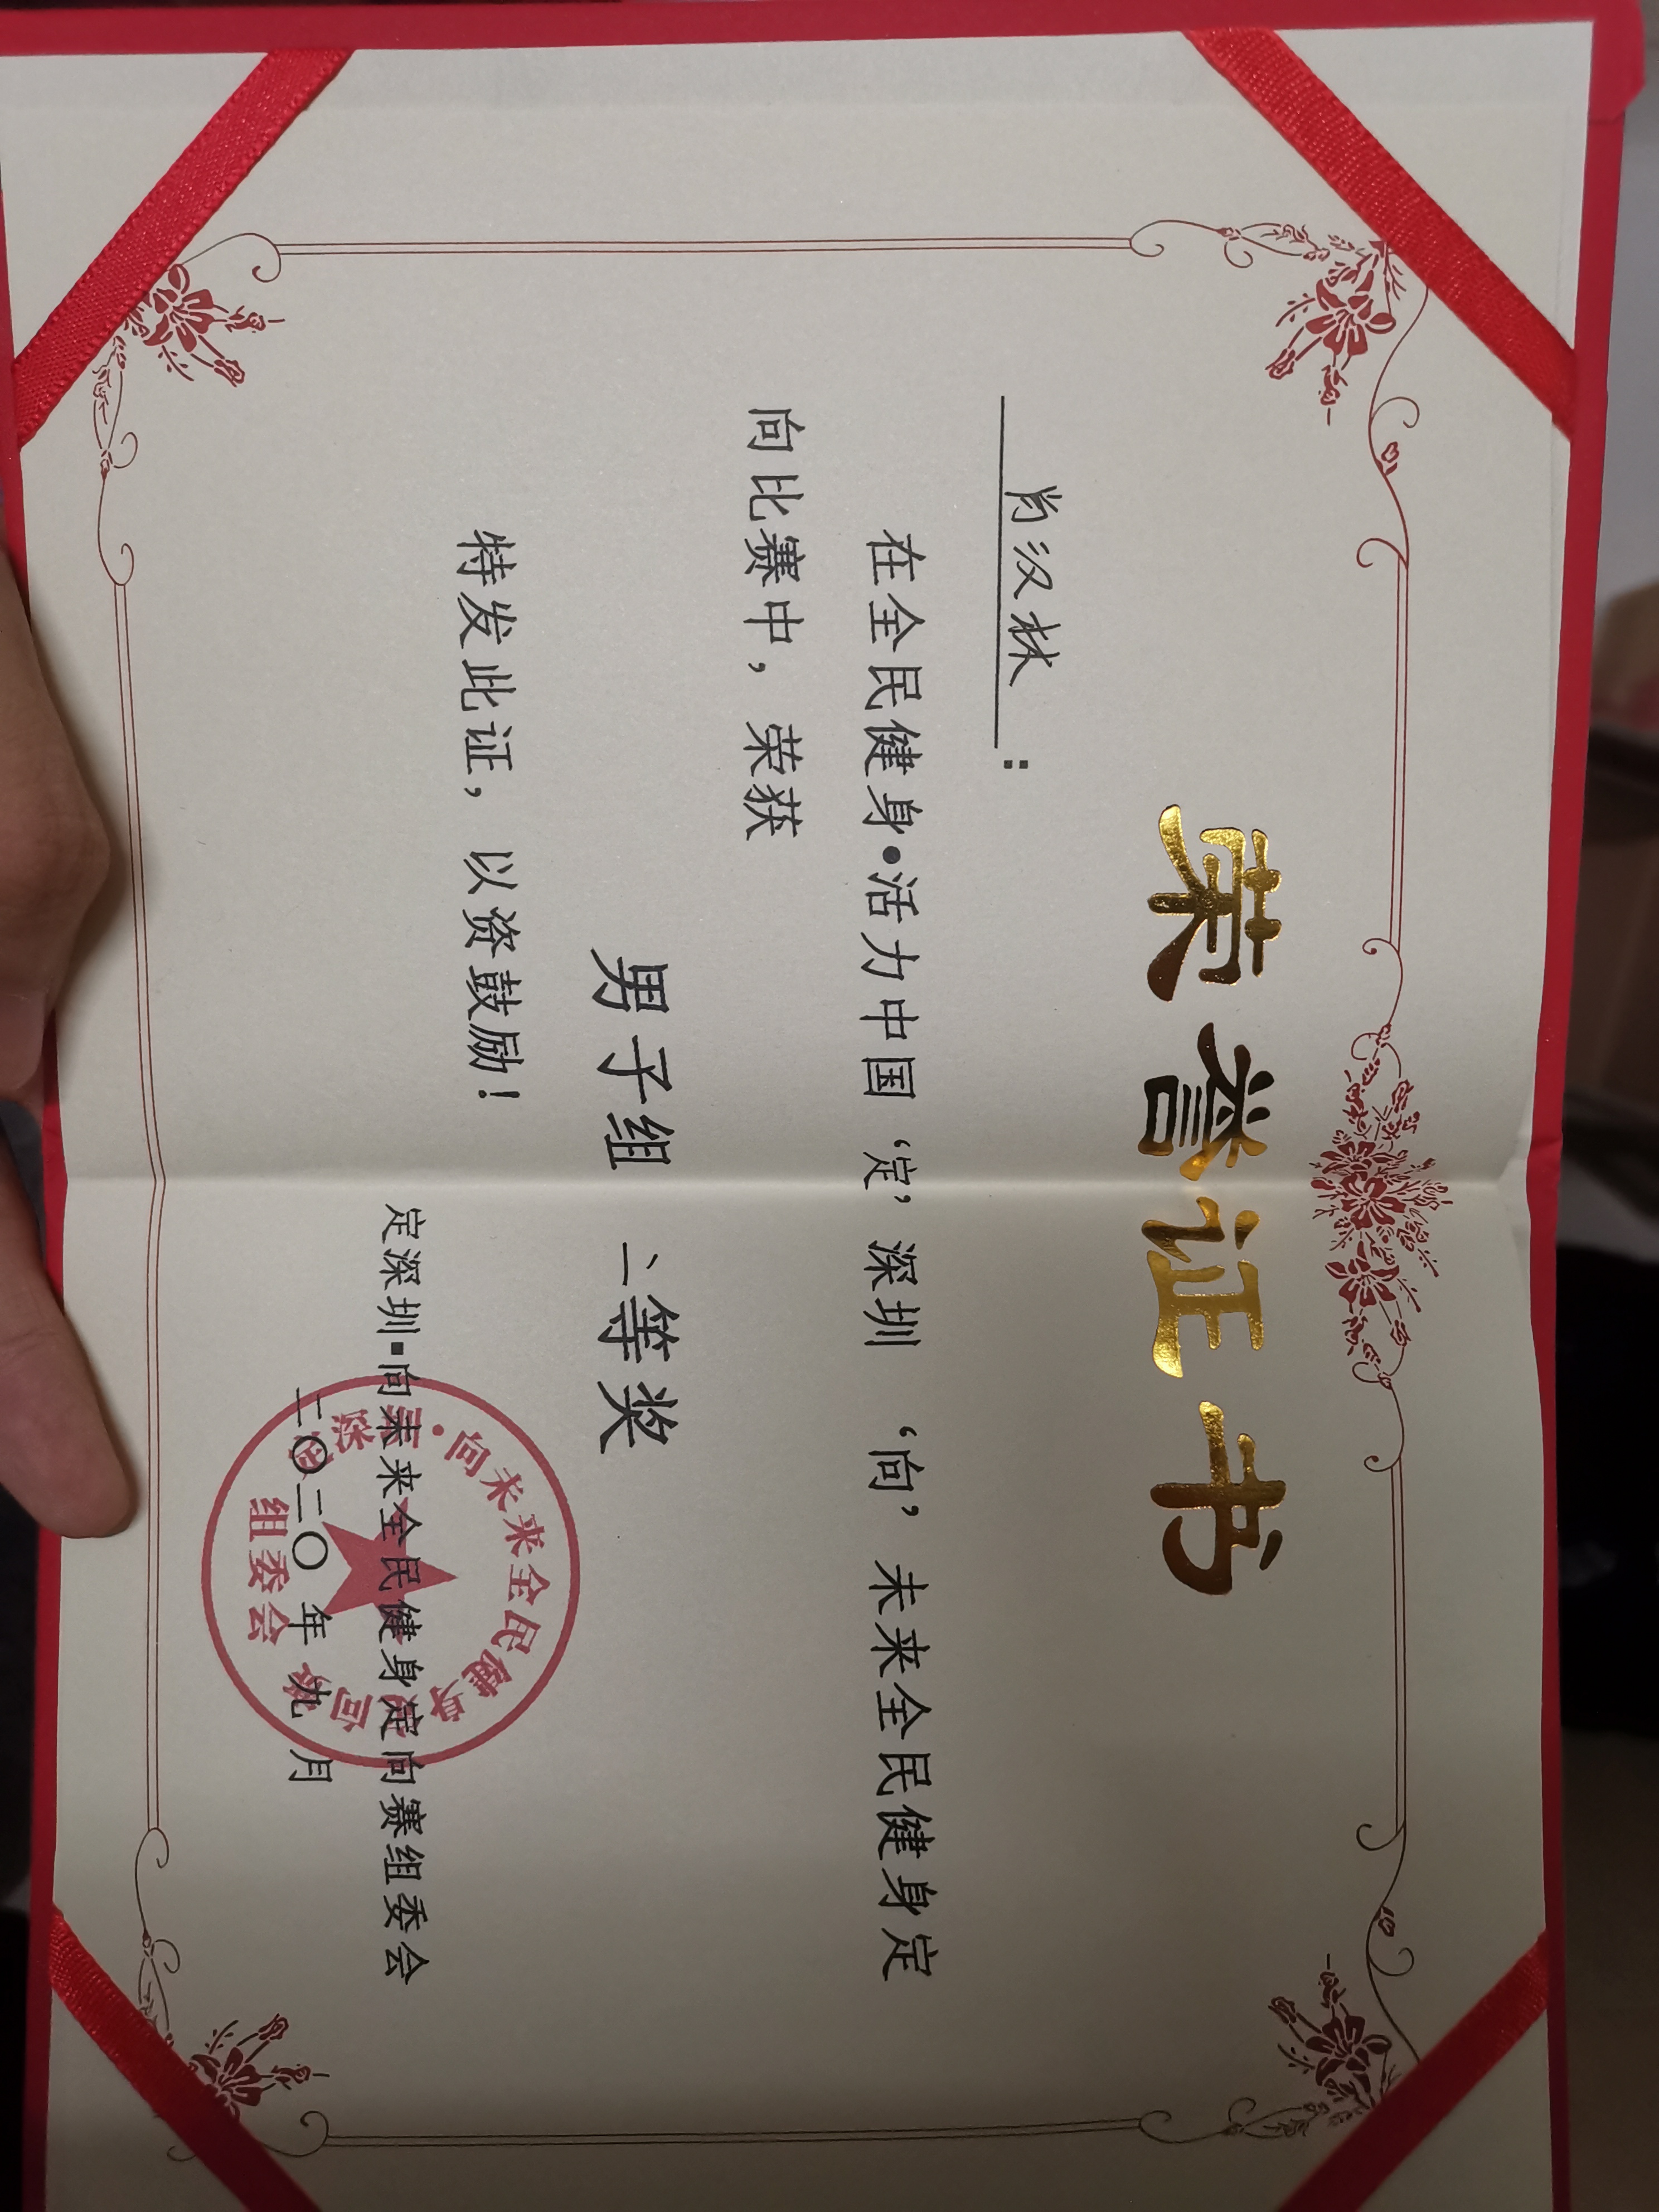 荣誉证书
肖汉林：
在全民健身•活力中国‘定’深圳 ‘向’未来全民健身定
向比赛中，荣获
男子组 等奖
特发此证，以资鼓励！
定深圳▪向未来全民健身定向赛组委会
二〇二〇年九月
定深圳·向未来全民健身定向赛
组委会